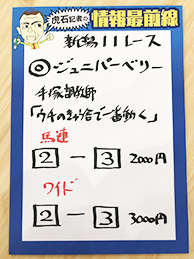 虎石記者の
情報最前線
新潟11レース
◎ジュニパーベリー
手塚調教師
「ウチのきゅう舎で一番動く」
馬連
2 - 3 2000円
ワイド
2 - 3 3000円